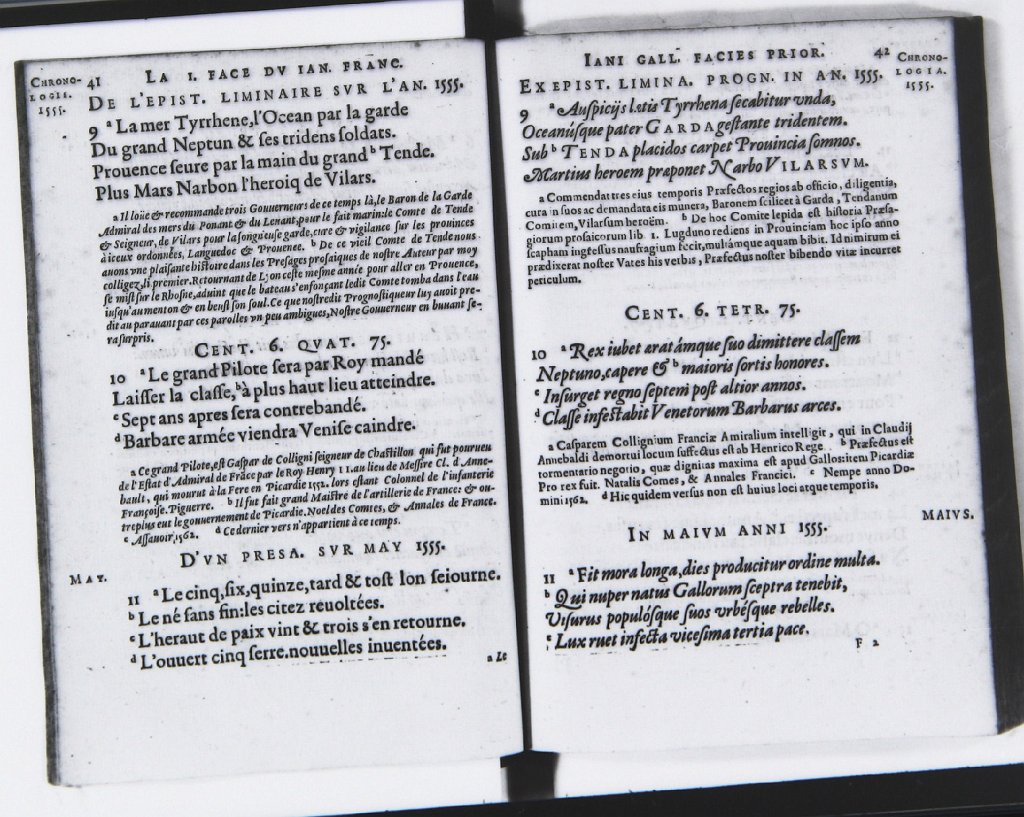 CHRONO-
LOGIE.
1555.
41 LA I. FACE DV IAN. FRANC.
DE L'EPIST. LIMINAIRE SVR L'AN. 1555.
9 ᵃ La mer Tyrrhene, l'Ocean par la garde
Du grand Neptun & ses tridens soldats.
Prouence seure par la main du grand ᵇ Tende.
Plus Mars Narbon l'heroiq de Vilars.
a Il loüe & recommande trois Gouuerneurs de ce temps là, le Baron de la Garde
Admiral des mers du Ponant & du Leuant, pour le fait marin: le Comte de Tende
& Seigneur, de Vilars pour la songneuse garde, cure & vigilance sur les prouinces
à iceux ordonnées, Languedoc & Prouence. ᵇ De ce vieil Comte de Tende nous
auons vne plaisante histoire dans les Presages prosaiques de nostre Auteur par moy
colligez, li premier. Retournant de Lyon ceste mesme année pour aller en Prouence,
se mist sur le Rhosne, aduint que le bateau s'enfonçant ledit Comte tomba dans l'eau
iusqu'au menton & en beust son soul. Ce que nostredit Prognostiqueur luy auoit pre-
dit au parauant par ces parolles vn peu ambigues, Nostre Gouuerneur en buuant se-
ra surpris.
CENT. 6. QVAT. 75.
10 ᵃ Le grand Pilote sera par Roy mandé
Laisser la classe, ᵇ à plus haut lieu atteindre.
ᶜ Sept ans apres sera contrebandé.
ᵈ Barbare armée viendra Venise caindre.
a Ce grand Pilote, est Gaspar de Colligni seigneur de Chastillon qui fut pourueu
de l'Estat d'Admiral de Frãce par le Roy Henry II. au lieu de Messire Cl. d'Anne-
bault, qui mourut à la Fere en Picardie 1552. lors estant Colonel de l'infanterie
Françoise. Piguerre. ᵇ Il fut fait grand Maistre de l'artillerie de France: & ou-
treplus eut le gouuernement de Picardie. Noel des Comtes, & Annales de France.
ᶜ Assauoir, 1562. ᵈ Ce dernier vers n'appartient à ce temps.
D'VN PRESA. SVR MAY 1555.
MAY.
11 ᵃ Le cinq, six, quinze, tard & tost lon seiourne.
ᵇ Le né sans fin: les citez reuoltées.
ᶜ L'heraut de paix vint & trois s'en retourne.
ᵈ L'ouuert cinq serre. nouuelles inuentées.
a Le
IANI GALL. FACIES PRIOR. 42
CHRONO-
LOGIA.
1555.
EX EPIST. LIMINA. PROGN. IN AN. 1555.
9 ᵃ Auspicijs lætis Tyrrhena secabitur vnda,
Oceanúsque pater GARDA gestante tridentem.
Sub ᵇ TENDA placidos carpet Prouincia somnos.
Martius heroem præponet Narbo VILARSVM.
a Commendat tres eius temporis Præfectos regios ab officio, diligentia,
cura in suos ac demandata eis munera, Baronem scilicet à Garda, Tendanum
Comitem, Vilarsum heroëm. ᵇ De hoc Comite lepida est historia Præsa-
giorum prosaicorum lib. 1. Lugduno rediens in Prouinciam hoc ipso anno
scapham ingressus naufragium fecit, multámque aquam bibit. Id nimirum ei
prædixerat noster Vates his verbis, Præfectus noster bibendo vitæ incurret
periculum.
CENT. 6. TETR. 75.
10 ᵃ Rex iubet aratámque suo dimittere classem
Neptuno, capere & ᵇ maioris sortis honores.
ᶜ Insurget regno septem post altior annos.
ᵈ Classe infestabit Venetorum Barbarus arces.
a Casparem Collignium Franciæ Amiralium intelligit, qui in Claudij
Annebaldi demortui locum suffectus est ab Henrico Rege. ᵇ Præfectus est
tormentario negotio, quæ dignitas maxima est apud Gallos: item Picardiæ
Pro rex fuit. Natalis Comes, & Annales Francici. ᶜ Nempe anno Do-
mini 1562. ᵈ Hic quidem versus non est huius loci atque temporis.
IN MAIVM ANNI 1555.
MAIVS.
11 ᵃ Fit mora longa, dies producitur ordine multa.
ᵇ Qui nuper natus Gallorum sceptra tenebit,
Visurus populósque suos vrbésque rebelles.
ᶜ Lux ruet infecta vicesima tertia pace.
F 2